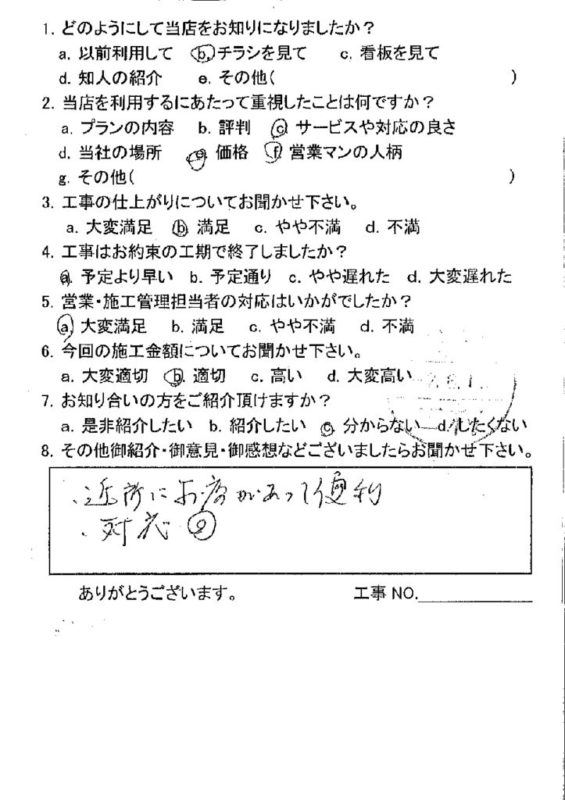 1. どのようにして当店をお知りになりましたか？
a. 以前利用して b. チラシを見て c. 看板を見て
d. 知人の紹介 e. その他( )
2. 当店を利用するにあたって重視したことは何ですか？
a. プランの内容 b. 評判 c. サービスや対応の良さ
d. 当社の場所 e. 価格 f. 営業マンの人柄
g. その他( )
3. 工事の仕上がりについてお聞かせ下さい。
a. 大変満足 b. 満足 c. やや不満 d. 不満
4. 工事はお約束の工期で終了しましたか？
a. 予定より早い b. 予定通り c. やや遅れた d. 大変遅れた
5. 営業・施工管理担当者の対応はいかがでしたか？
a. 大変満足 b. 満足 c. やや不満 d. 不満
6. 今回の施工金額についてお聞かせ下さい。
a. 大変適切 b. 適切 c. 高い d. 大変高い
7. お知り合いの方をご紹介頂けますか？
a. 是非紹介したい b. 紹介したい c. 分からない d. したくない
8. その他御紹介・御意見・御感想などございましたらお聞かせ下さい。
・近所にお店があって便利
・対応
ありがとうございます。 工事 NO.